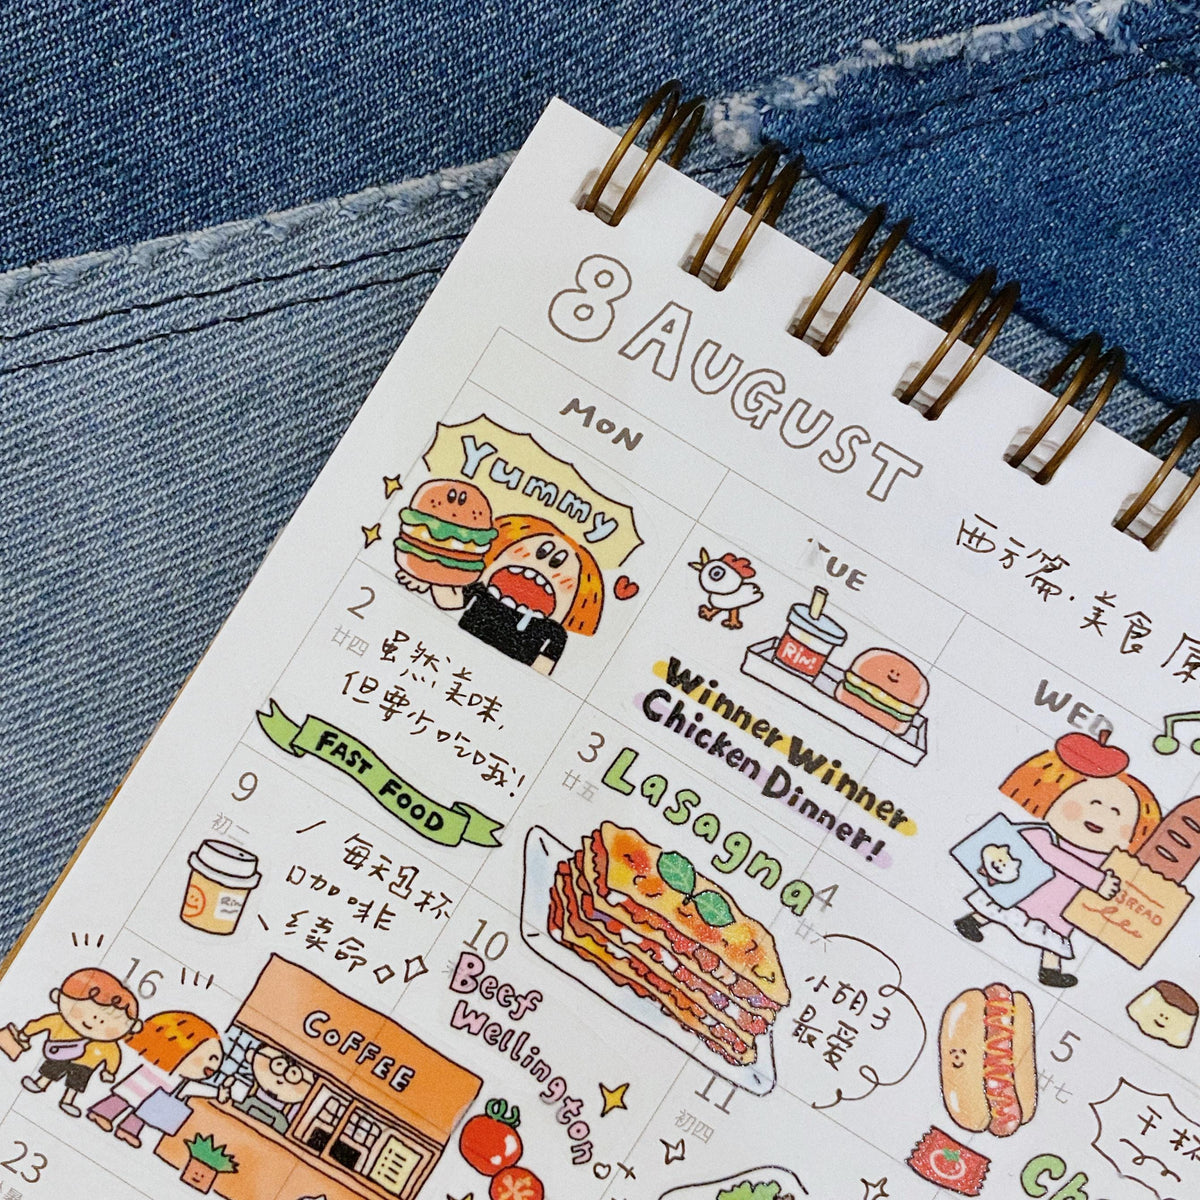 8 AUGUST
MON
TUE
WED
西方篇·美食庫
Yummy
Rin!
Winner Winner
Chicken Dinner!
BREAD
2
廿四
虽然美味,
但要少吃哦!
FAST FOOD
3
廿五
Lasagna
4
廿六
小胡子
最爱
5
廿七
干杯
Ch
9
初二
每天迅杯
咖啡
续命
10
Beef
Wellington
11
初四
16
COFFEE
23